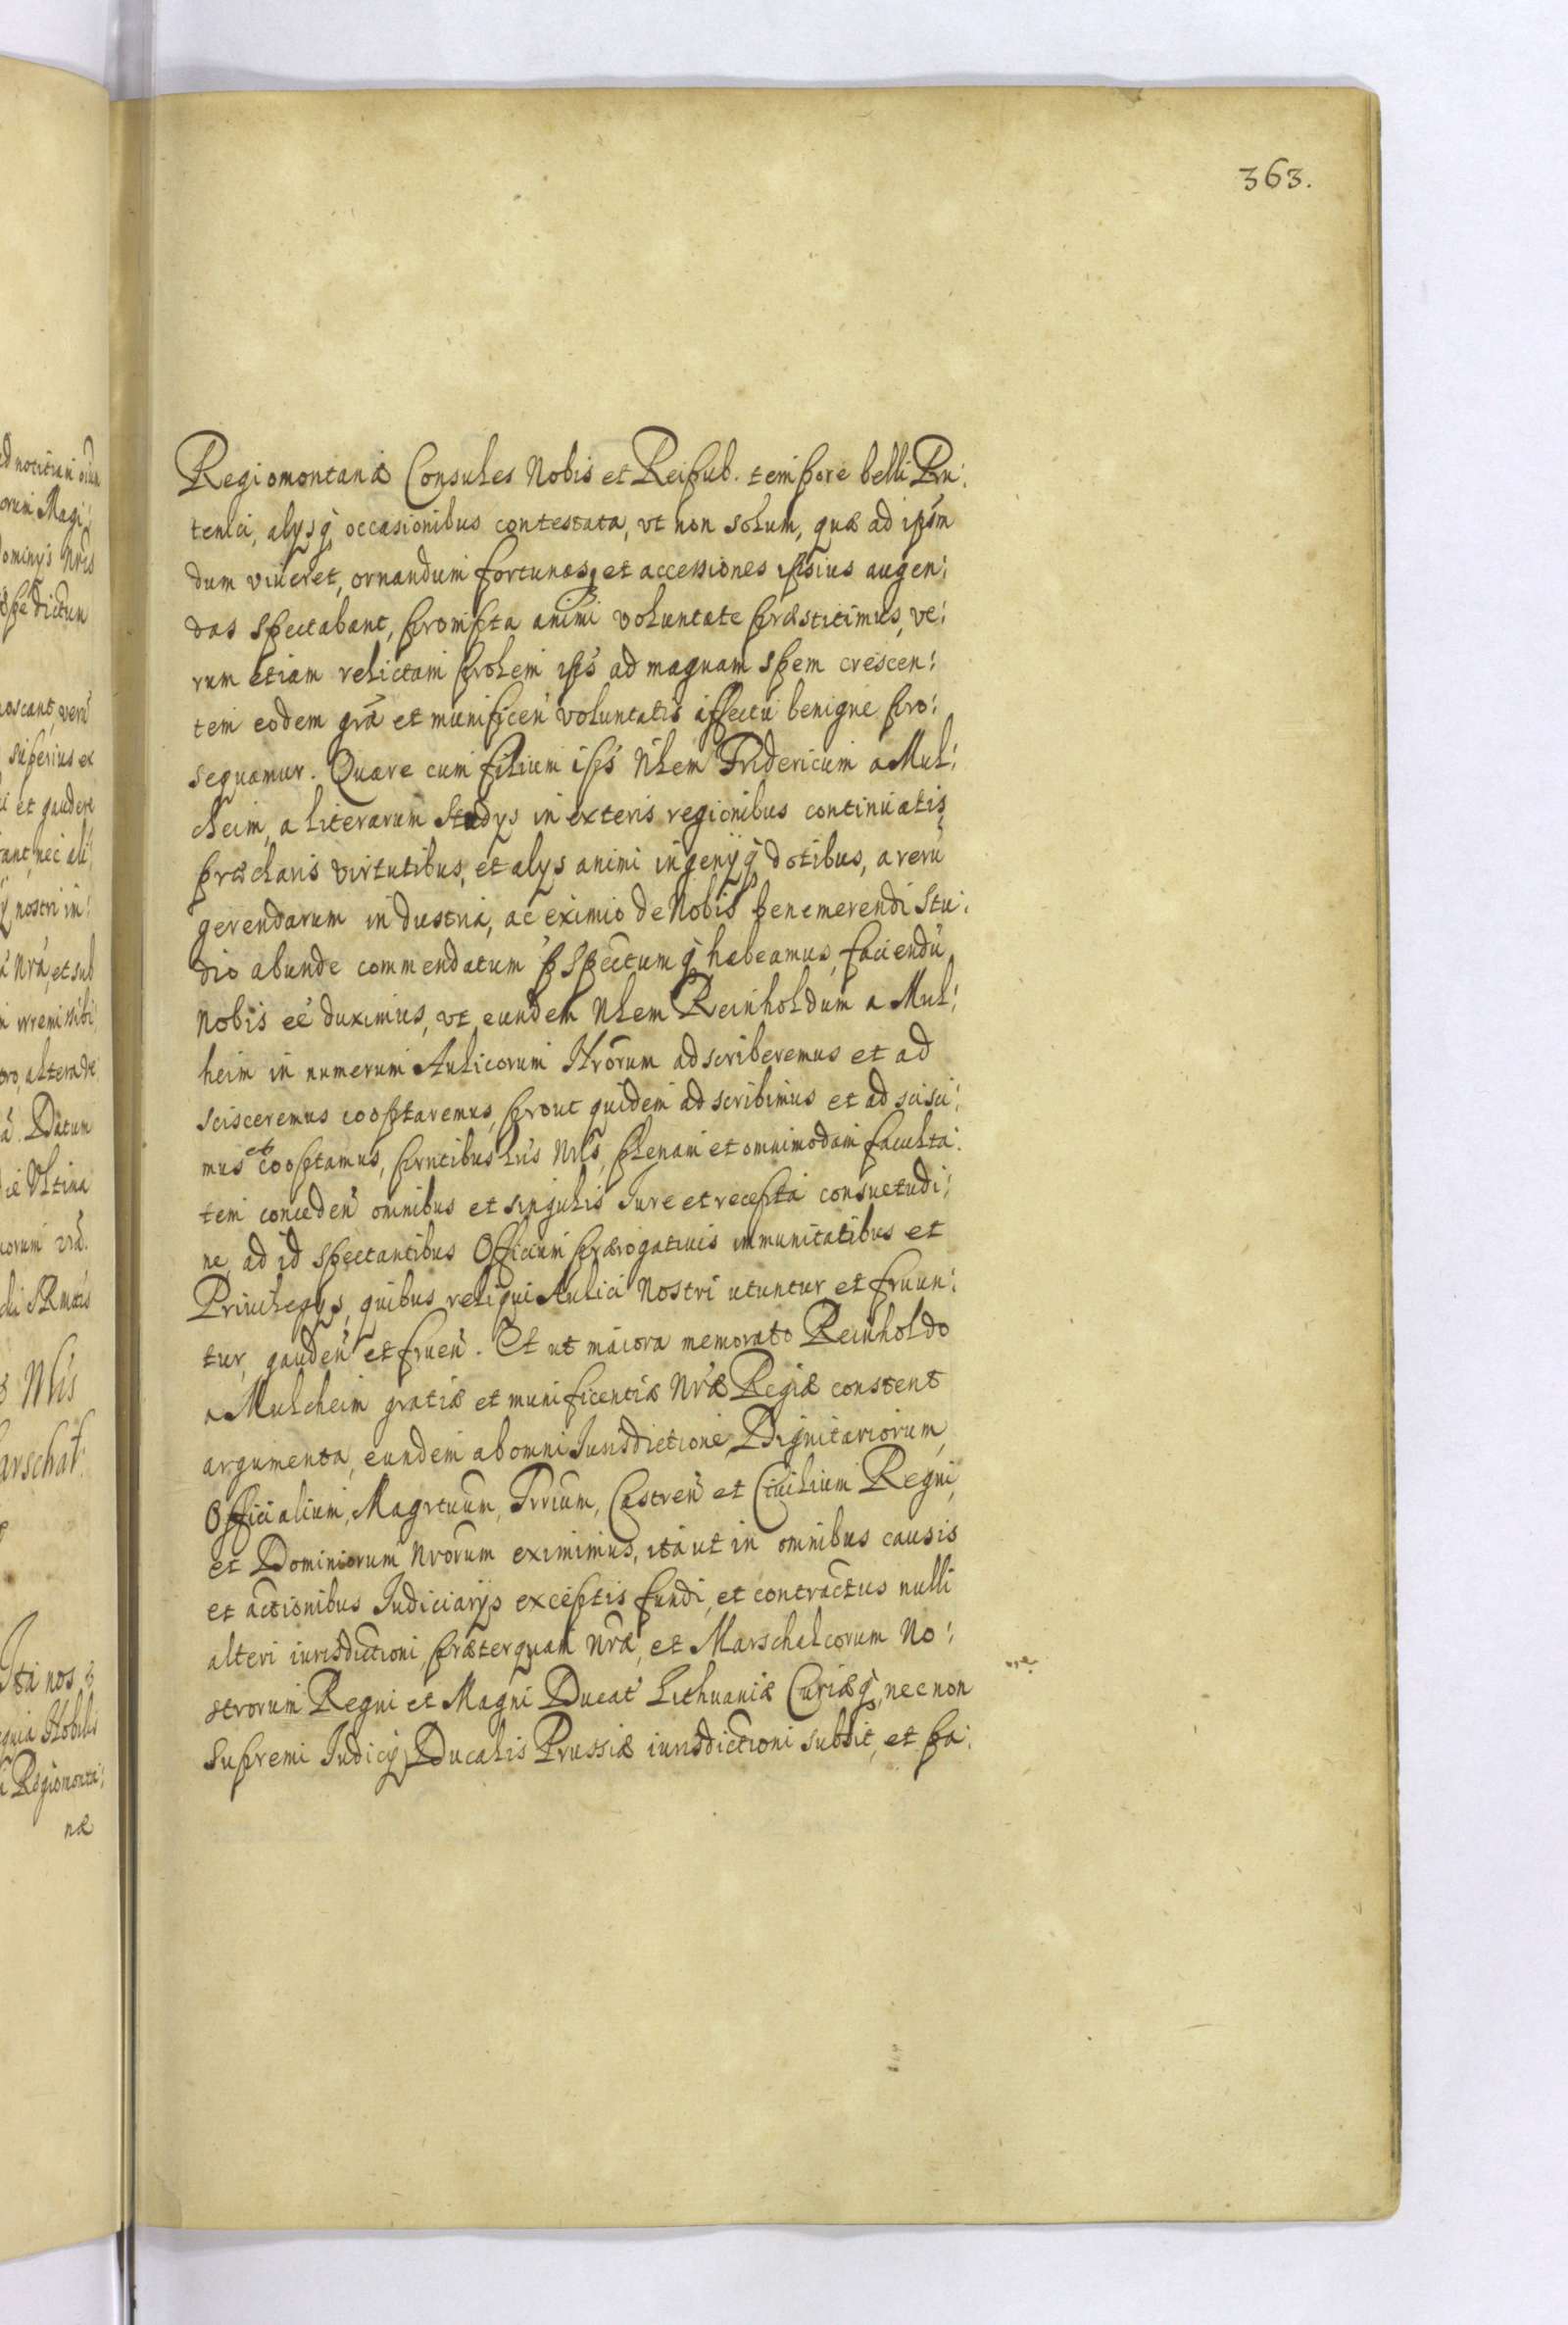 363.
Regiomontanæ Consules Nobis et Reipub. tempore belli Pru:
tenici, alysq̃ occasionibus contestata, vt non solum, quæ ad ipsm̃
dum viueret, ornandum fortunasq̃ et accessiones ipsius augen:
das spectabant, prompta animi voluntate præstitimus, ve:
rum etiam relictam prolem ips̃ ad magnam spem crescen:
tem eodem grã et munificeñ voluntatis affectu benigne pro:
sequamur. Quare cum filium ips̃ Nlem Fridericum a Mul:
cheim, a literarum studys in exteris regionibus continuatis
præclaris virtutibus, et alys animi ingenyq̃ dotibus, a rerũ
gerendarum industria, ac eximio de Nobis benemerendi stu:
dio abunde commendatum pspectumq̃ habeamus, faciendũ
Nobis eẽ duximus, vt eundem Nlem Reinholdum a Mul:
heim in numerum Aulicorum Nrõrum adscriberemus et ad
scisceremus cooptaremus, prout quidem adscribimus et ad scisci:
mus et cooptamus, prñtibus lris̃ Nris̃, plenam et omnimodam faculta:
tem concedeñ omnibus et singulis Jure et recepta consuetudi:
ne ad id spectantibus Officium prærogatiuis immunitatibus et
Priuilegys, quibus reliqui Aulici Nostri utuntur et fruun:
tur, gaudeñ et frueñ. Et ut maiora memorato Reinholdo
a Mulcheim gratiæ et munificentiæ Nræ̃ Regiæ constent
argumenta, eundem ab omni Jurisdictione Dignitariorum,
Officialium, Magrtuum, Trrium, Castreñ et Ciuilium Regni,
et Dominiorum Nrõrum eximimus, ita ut in omnibus causis
et actionibus Judiciarys exceptis fundi, et contractus nulli
alteri iurisdictioni præterquam Nræ̃, et Marschalcorum No:
strorum Regni et Magni Ducat̃ Lithuaniæ Curiæq̃, nec non
Supremi Judicij Ducalis Prussiæ iurisdictioni subsit, et pa: